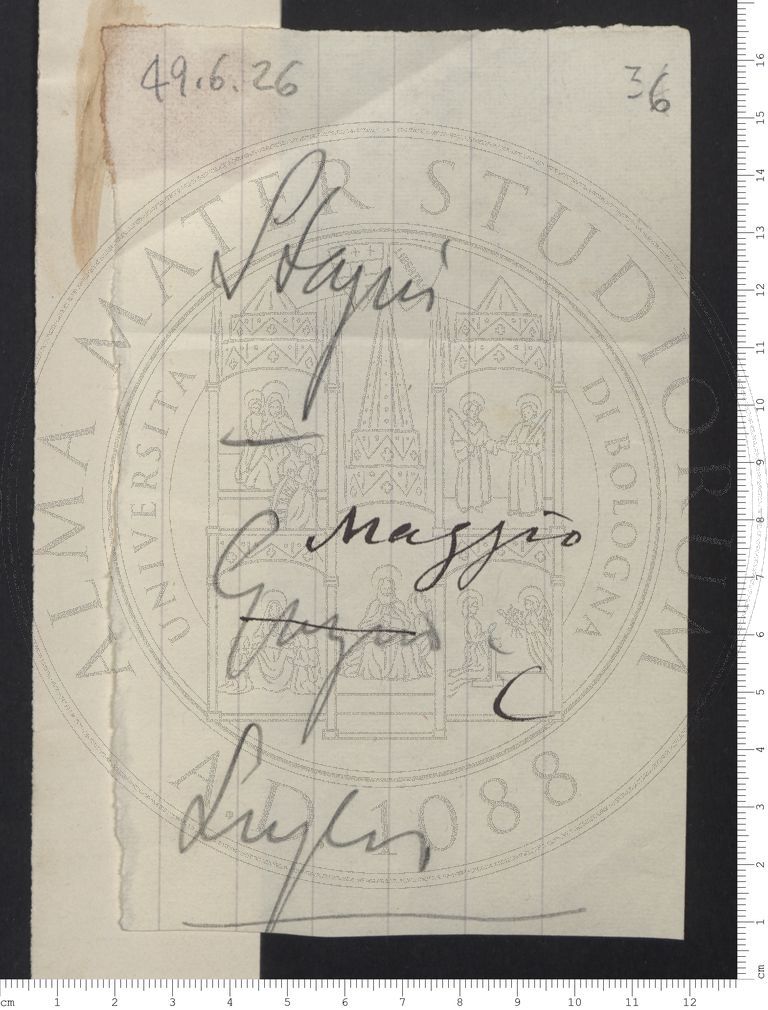 49.6.26 36
Stagni
Maggio
Giugno
C
Luglio
ALMA MATER STUDIORUM
UNIVERSITA DI BOLOGNA
A.D. 1088
cm 1 2 3 4 5 6 7 8 9 10 11 12
cm 1 2 3 4 5 6 7 8 9 10 11 12 13 14 15 16